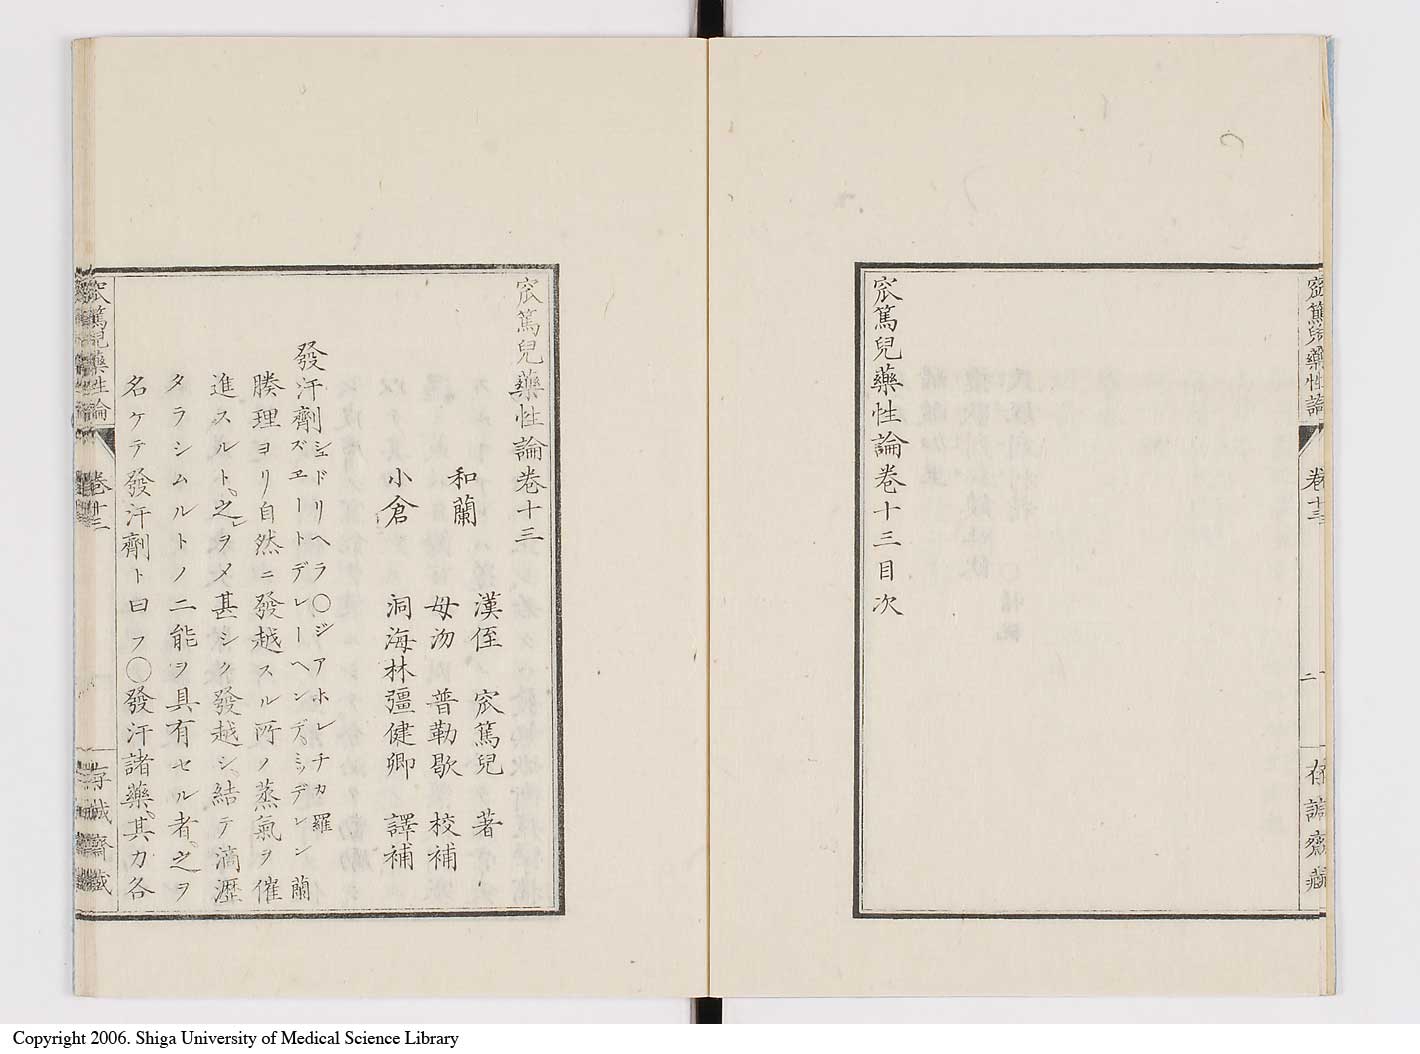 窊篤兒藥性論
卷十三
二
存誠齋藏
窊篤兒藥性論卷十三目次
窊篤兒藥性論卷十三
漢侄 窊篤兒 著
和蘭
母沕 普勒歇 校補
小倉 洞海林彊健卿 譯補
發汗劑シュドリヘラ〇ジアホレチカ羅
ズヱートデレーヘンデミッデレン蘭
腠理ヨリ自然ニ發越スル所ノ蒸氣ヲ催
進スルト、之ヲメ甚シク發越シ、結テ滴瀝
タラシムルトノ二能ヲ具有セル者、之ヲ
名ケテ發汗劑ト曰フ〇發汗諸藥、其力各
窊篤兒藥性論
卷十三
存誠齋藏
Copyright 2006. Shiga University of Medical Science Library